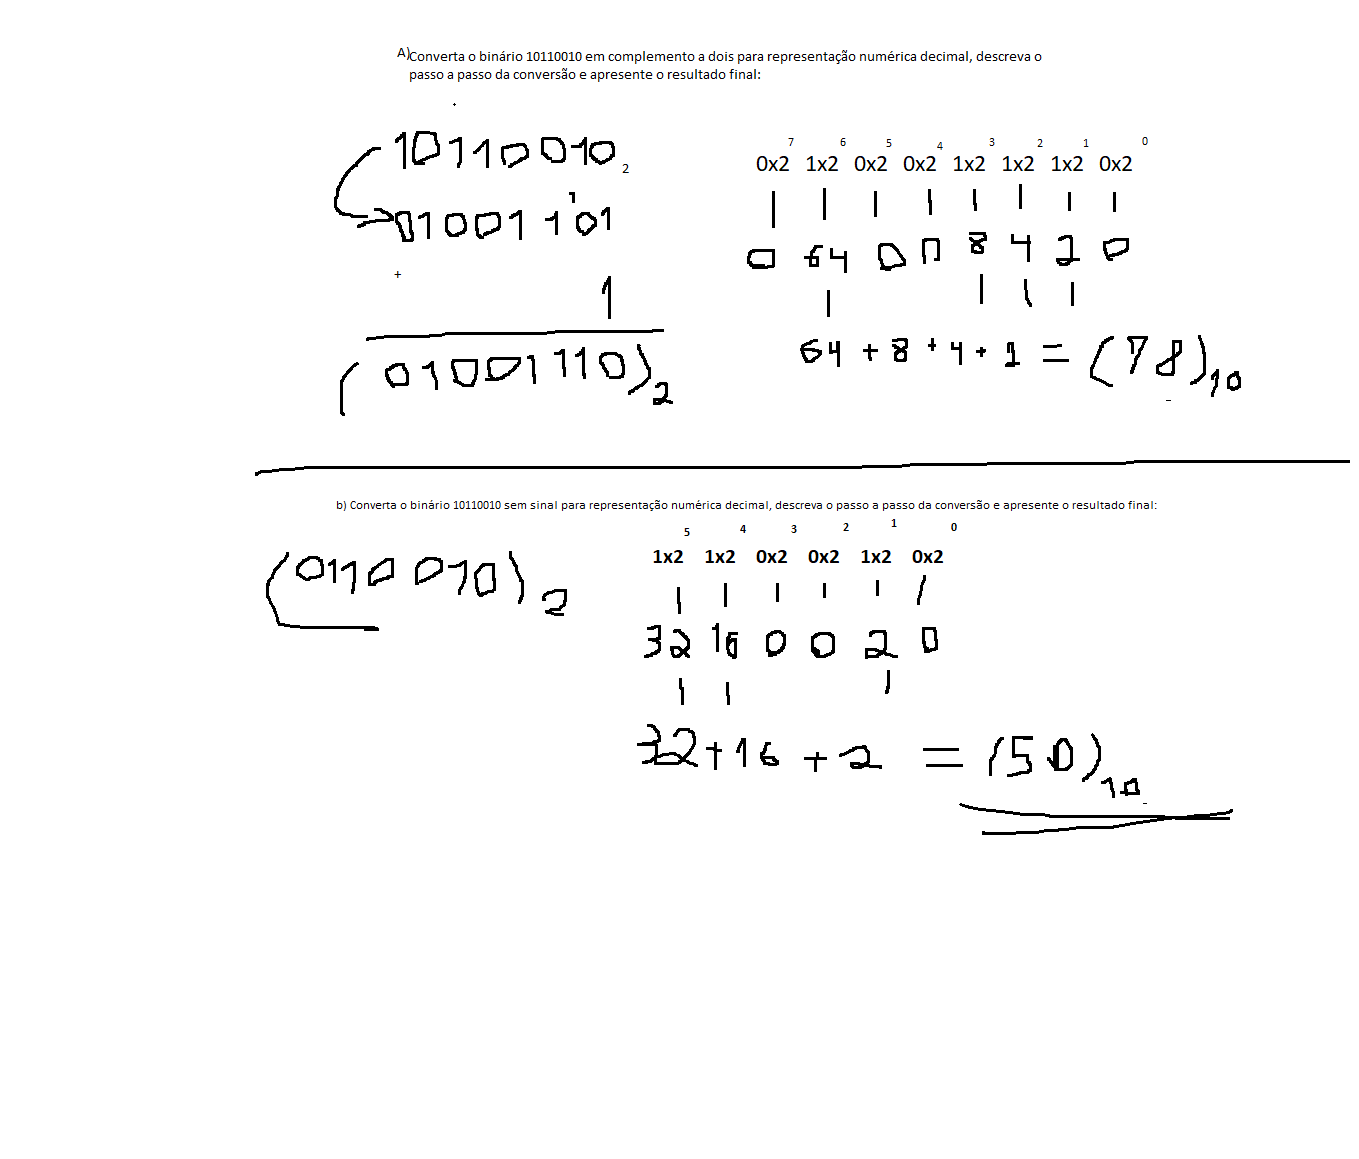 A)Converta o binário 10110010 em complemento a dois para representação numérica decimal, descreva o
passo a passo da conversão e apresente o resultado final:
10110010 2
1
01001101
+
1
(01001110)2
7 6 5 4 3 2 1 0
0x2 1x2 0x2 0x2 1x2 1x2 1x2 0x2
0 64 0 0 8 4 2 0
64 + 8 + 4 + 2 = (78)10
b) Converta o binário 10110010 sem sinal para representação numérica decimal, descreva o passo a passo da conversão e apresente o resultado final:
(0110010)2
5 4 3 2 1 0
1x2 1x2 0x2 0x2 1x2 0x2
32 16 0 0 2 0
32+16 + 2 = (50)10